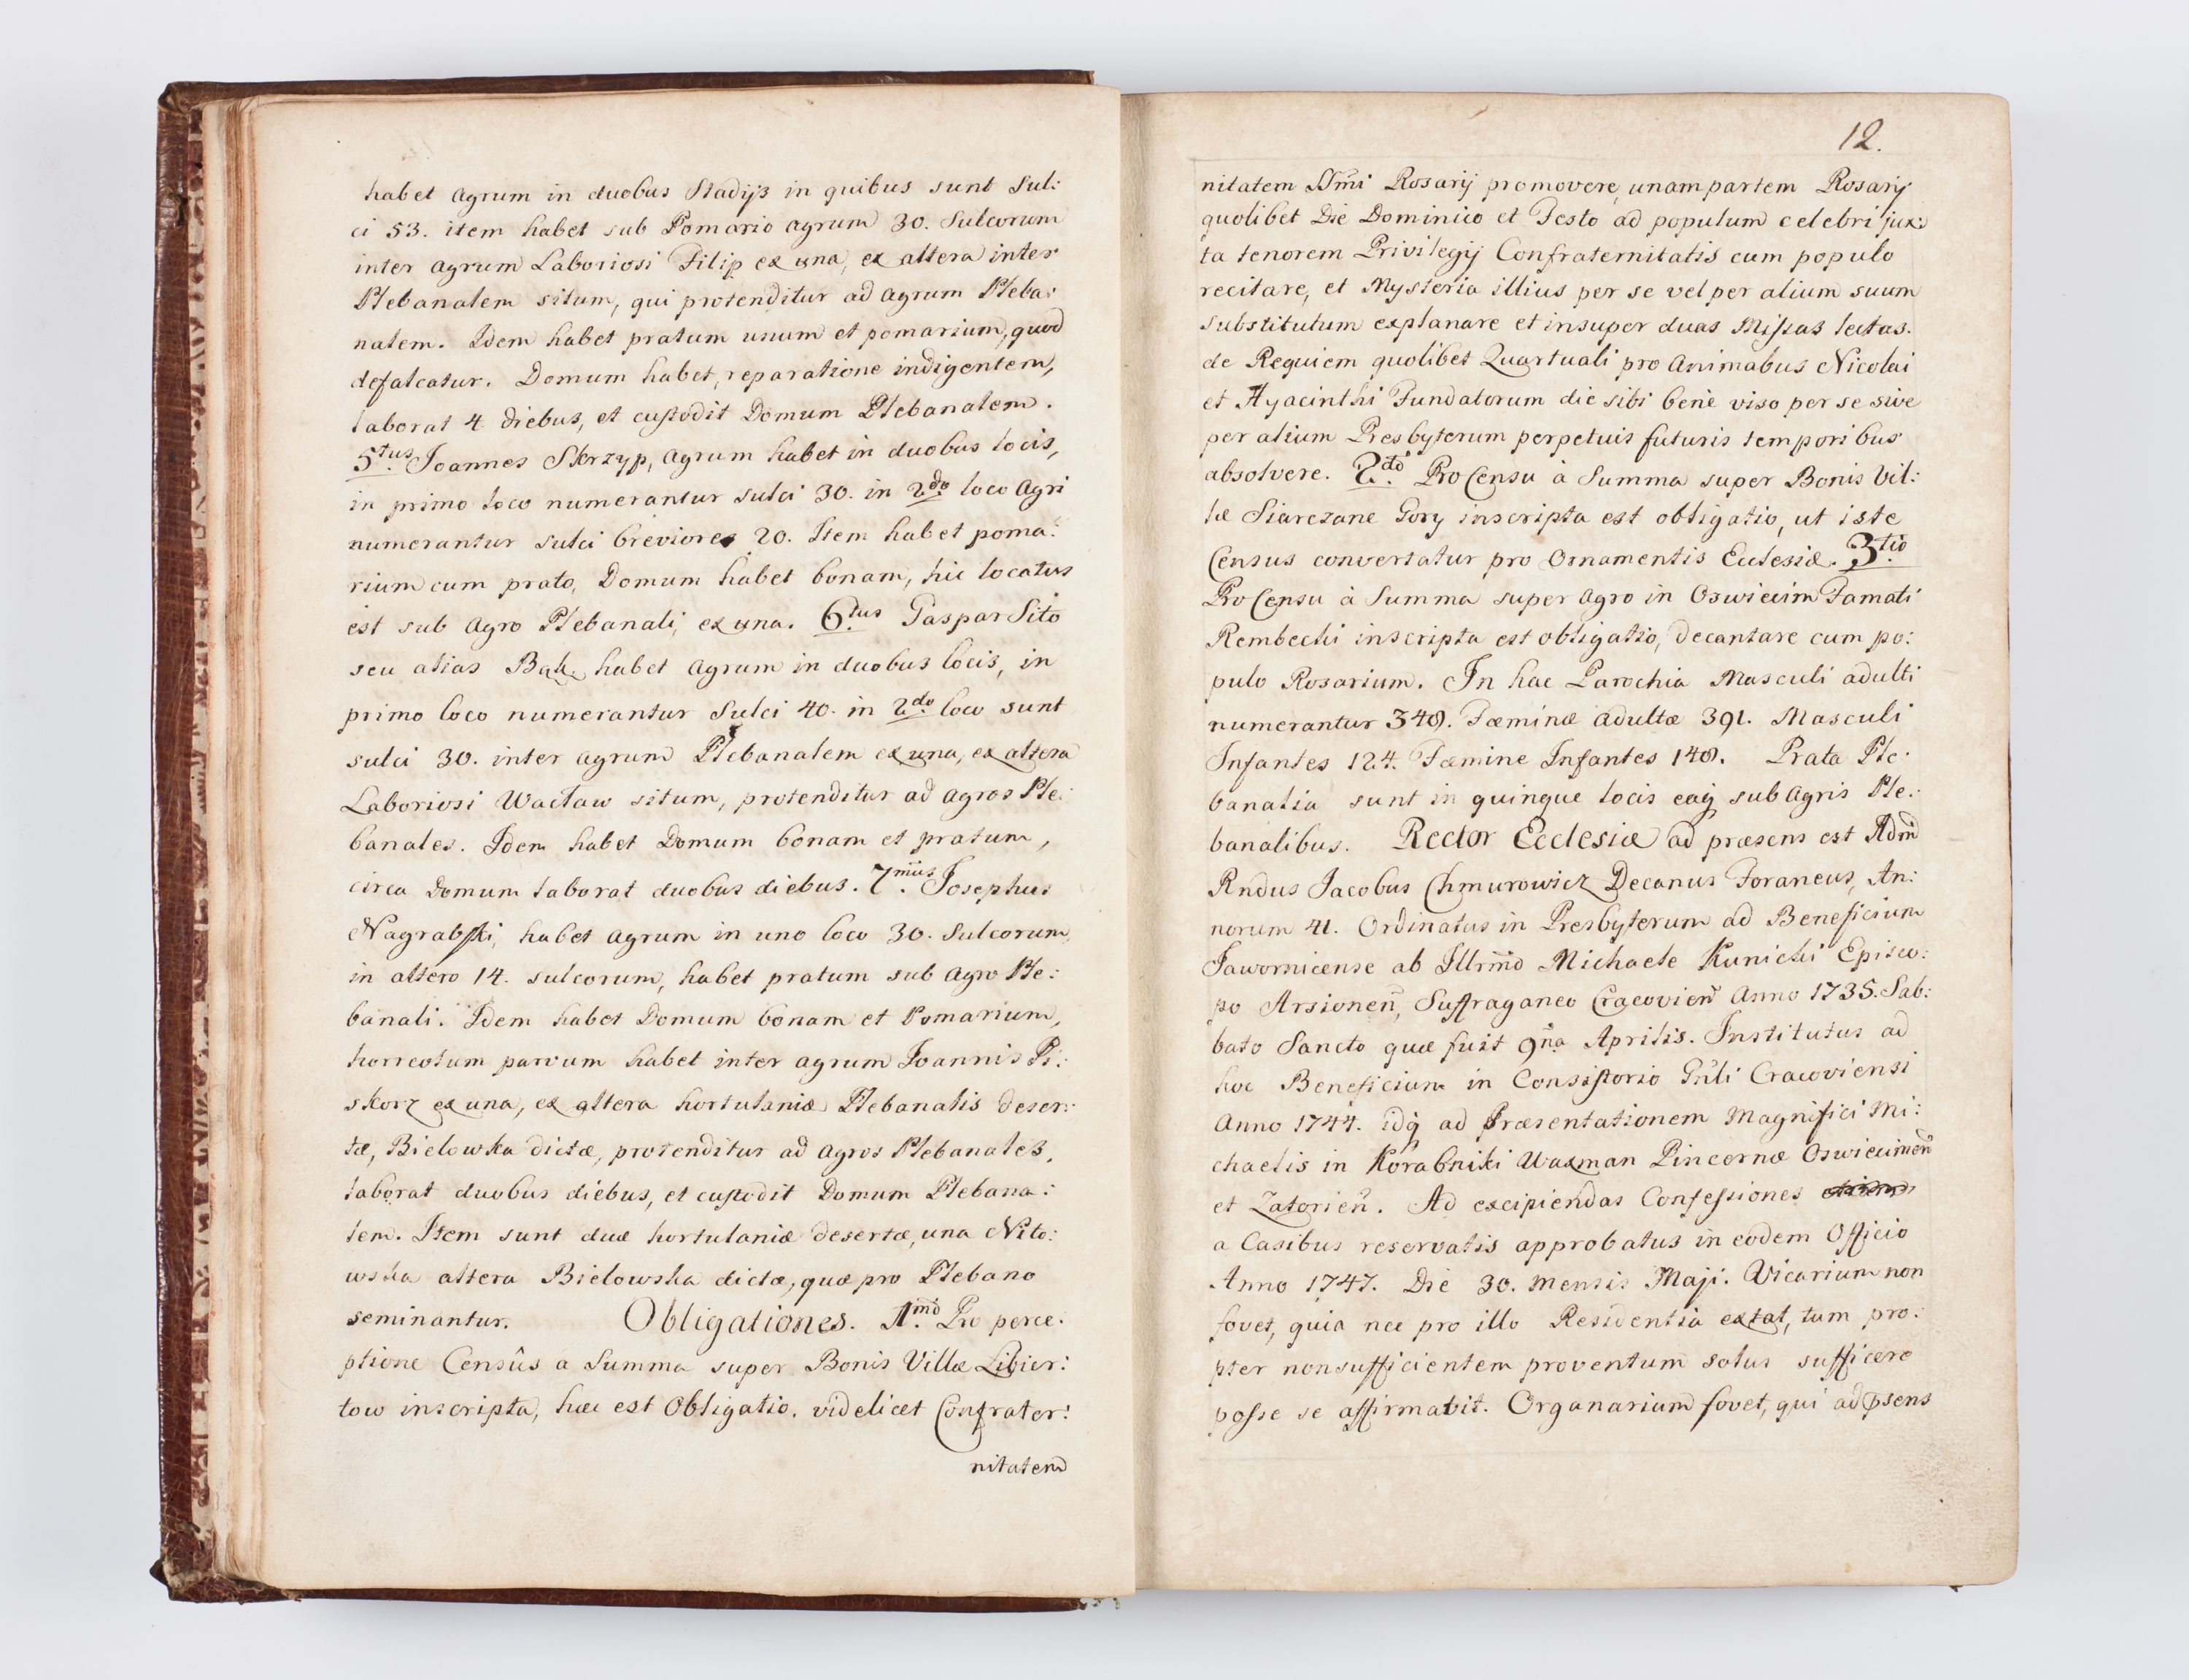 habet agrum in duobus Stadijs in quibus sunt Sul:
ci 53. item habet sub Pomario agrum 30. Sulcorum
inter agrum Laboriosi Filip ex una, ex altera inter
Plebanalem situm, qui protenditur ad agrum Pleba:
nalem. Idem habet pratum unum et pomarium, quod
defalcatur. Domum habet, reparatione indigentem,
laborat 4 diebus, et custodit Domum Plebanalem.
5tus Joannes Skrzyp, agrum habet in duobus locis,
in primo loco numerantur sulci 30. in 2do loco agri
numerantur sulci breviores 20. Item habet poma:
rium cum prato, Domum habet bonam, hic locatus
est sub agro Plebanali, ex una. 6tus Gaspar Sito
seu alias habet agrum in duobus locis, in
primo loco numerantur Sulci 40. in 2do loco sunt
sulci 30. inter agrum Plebanalem ex una, ex altera
Laboriosi Wacław situm, protenditur ad agros Ple:
banales. Idem habet Domum bonam et pratum,
circa Domum laborat duobus diebus. 7mus Josephus
Nagrabski, habet agrum in uno loco 30. Sulcorum,
in altero 14. sulcorum, habet pratum sub agro Ple:
banali. Idem habet Domum bonam et Pomarium,
horreolum parvum habet inter agrum Joannis Pi:
skorz ex una, ex altera hortulaniæ Plebanalis deser:
tæ, Bielowka dictæ, protenditur ad agros Plebanales,
laborat duobus diebus, et custodit Domum Plebana:
lem. Item sunt duæ hortulaniæ desertæ, una Nito:
wska altera Bielowska dictæ, quæ pro Plebano
seminantur. Obligationes. 1mo Pro perce:
ptione Censûs a Summa super Bonis Villæ Libier:
tow inscripta, hæc est Obligatio. videlicet Confrater:
nitatem
12.
nitatem SSmi Rosarij promovere, unam partem Rosarij
quolibet Die Dominico et Festo ad populum celebri jux:
ta tenorem Privilegij Confraternitatis cum populo
recitare, et Mysteria illius per se vel per alium suum
substitutum explanare et insuper duas Missas lectas.
de Requiem quolibet Quartuali pro Animabus Nicolai
et Hyacinthi Fundatorum die sibi bene viso per se sive
per alium Presbyterum perpetuis futuris temporibus
absolvere. 2do Pro Censu à Summa super Bonis Vil:
læ Siarczane Gory inscripta est obligatio, ut iste
Census convertatur pro Ornamentis Ecclesiæ. 3tio
Pro Censu à Summa super Agro in Oswiecim Famati
Rembecki inscripta est obligatio, decantare cum po:
pulo Rosarium. In hac Parochia Masculi adulti
numerantur 348. Fæminæ adultæ 391. Masculi
Infantes 124. Fæmine Infantes 148. Prata Ple:
banalia sunt in quinque locis eaq sub Agris Ple:
banalibus. Rector Ecclesiæ ad præsens est Adm
Rndus Jacobus Chmurowicz Decanus Foraneus, An:
norum 41. Ordinatus in Presbyterum ad Beneficium
Jawornicense ab Illrmo Michaele Kunicki Episco:
po Arsionen, Suffraganeo Cracovien Anno 1735. Sab:
bato Sancto quæ fuit 9na Aprilis. Institutus ad
hoc Beneficium in Consistorio Gnli Cracoviensi
Anno 1744. idq ad Præsentationem Magnifici Mi:
chaelis in Korabniki Waxman Pincernæ Oswiecimen
et Zatorien. Ad excipiendas Confessiones
a Casibus reservatis approbatus in eodem Officio
Anno 1747. Die 30. mensis Maji. Vicarium non
fovet, quia nec pro illo Residentia extat, tum pro:
pter nonsufficientem proventum solus sufficere
posse se affirmavit. Organarium fovet, qui ad psens